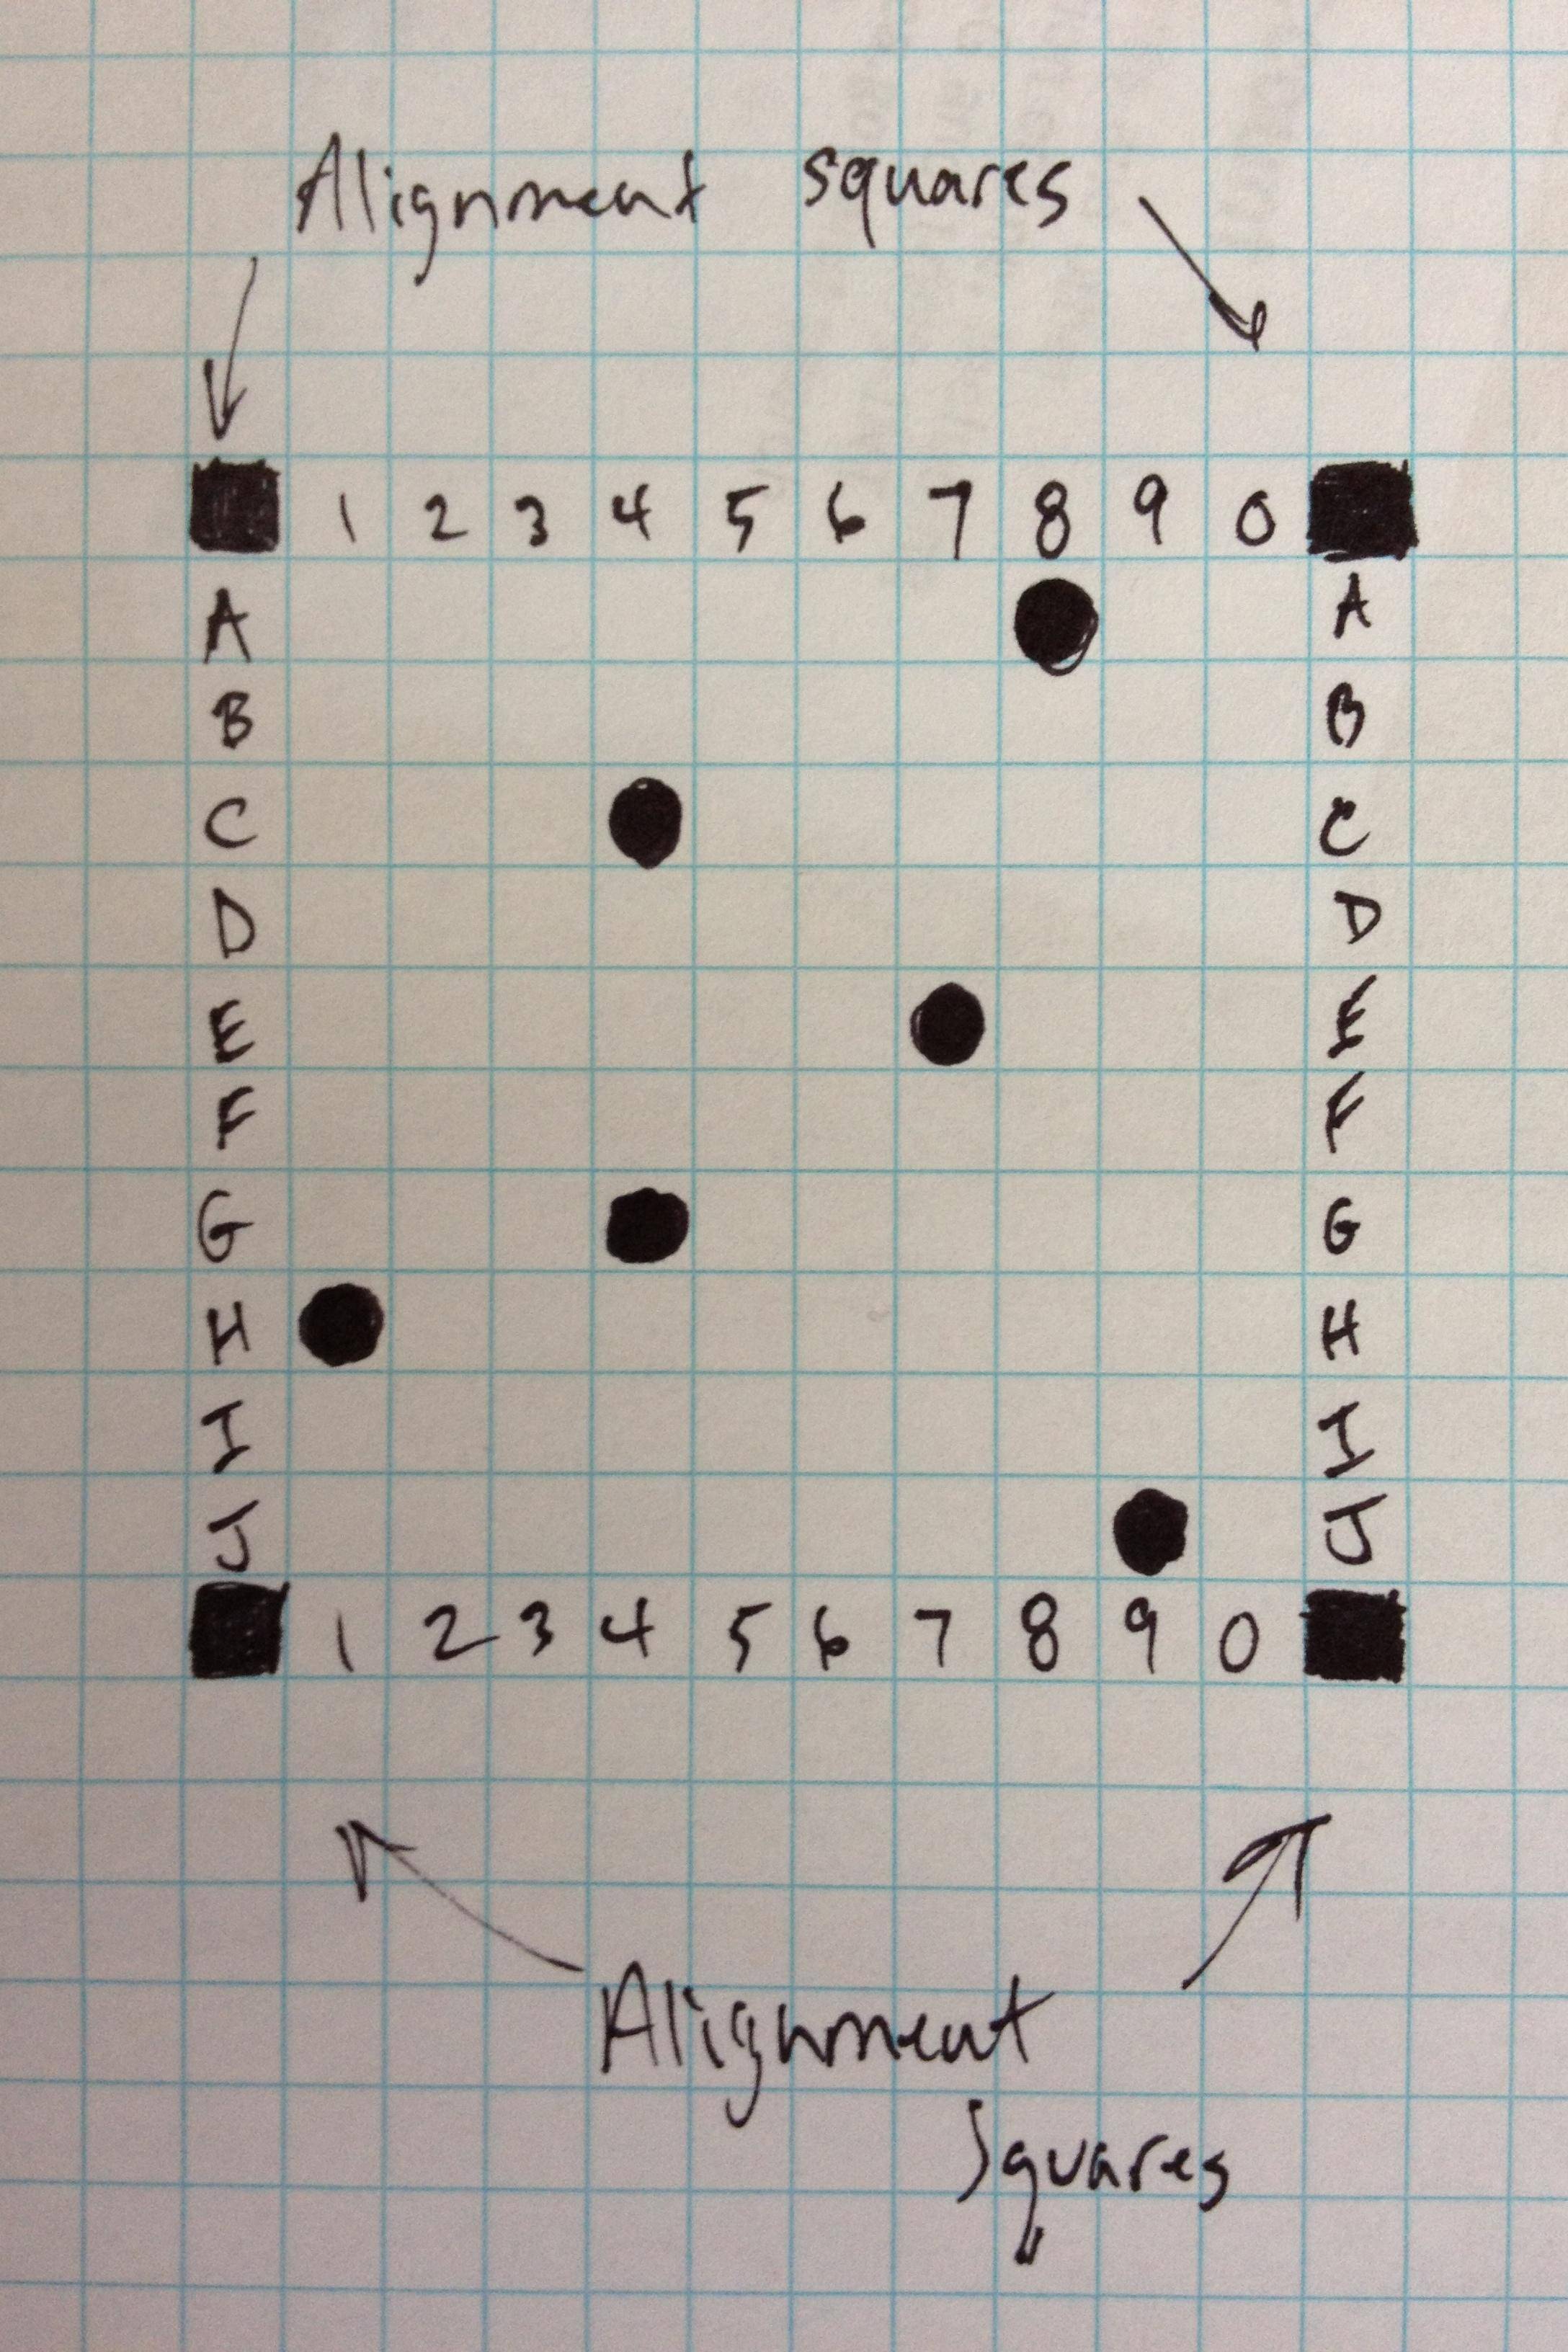 Alignment squares
1 2 3 4 5 6 7 8 9 0
A A
B B
C C
D D
E E
F F
G G
H H
I I
J J
1 2 3 4 5 6 7 8 9 0
Alignment
Squares